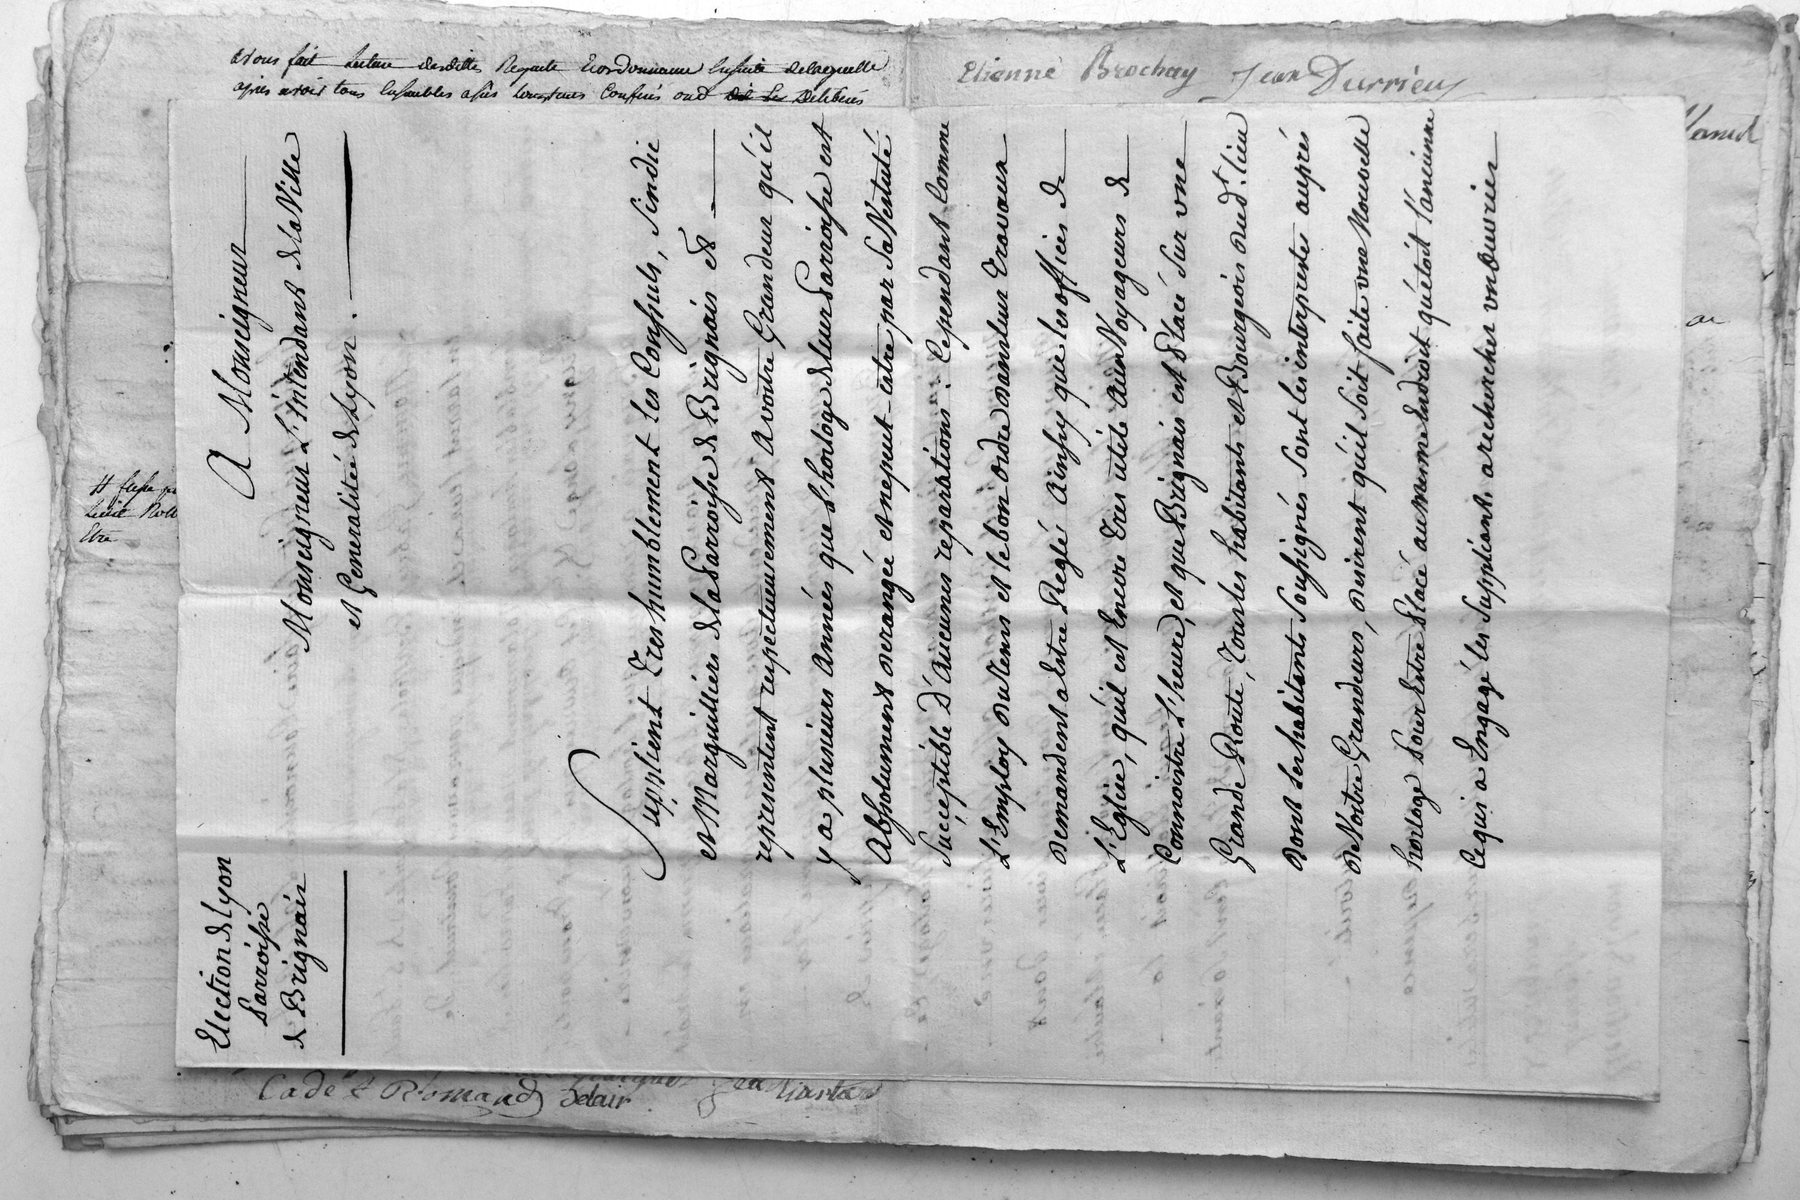 avons fait lecture desdittes Requete & ordonnance ensuite de laquelle
apres avoir tous ensembles
ont dit se deliberés
Etienne Brochay Jean Durrieu
Election de Lyon
Parroisse
de Brignais
A Monseigneur
Monseigneur L'intendant de la Ville
et Generalitée de Lyon.
Supplient tres humblement Les Consuls, Sindic
et Marguilliers de la Parroisse de Brignais et
representent respectueusement a votre Grandeur qu'il
y a plusieurs Années que l'horloge de leur Parroisse est
Absolument derangée et ne peut estre par sa Vestuté
Susceptible D'aucunes reparations. Cependant Comme
L'Employ du tems et le bon ordre dans leur travaux
demandent a Estre Reglé ainsy que les offices de
L'Eglise, qu'il est Encore tres utile aux Voyageurs de
Connoistre L'heure, et que Brignais est Placé sur une
Grande Route, Tous les habitants et Bourgeois dud.t lieu
dont les habitants Soussignés sont les interprestes auprés
de Vostre Grandeurs, desirent qu'il soit faite une Nouvelle
horloge Pour Estre Placé au meme Endroit qu'etoit l'ancienne
Ce qui a Engagé les Suppliants a rechercher un Ouvrier
Etre
Cadet Romand Delair